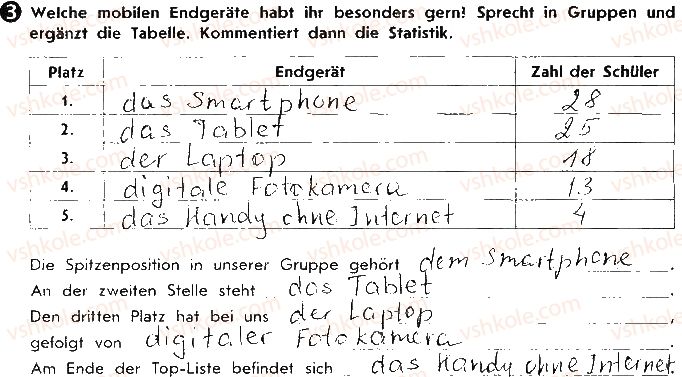 3 Welche mobilen Endgeräte habt ihr besonders gern! Sprecht in Gruppen und
ergänzt die Tabelle. Kommentiert dann die Statistik.
Platz Endgerät Zahl der Schüler
1. das Smartphone 28
2. das Tablet 25
3. der Laptop 18
4. digitale Fotokamera 13
5. das Handy ohne Internet 4
Die Spitzenposition in unserer Gruppe gehört dem Smartphone.
An der zweiten Stelle steht das Tablet.
Den dritten Platz hat bei uns der Laptop,
gefolgt von digitaler Fotokamera.
Am Ende der Top-Liste befindet sich das Handy ohne Internet.